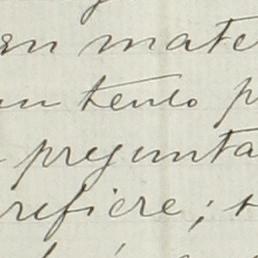 en mate
un tento p
pregunta
refiere; s